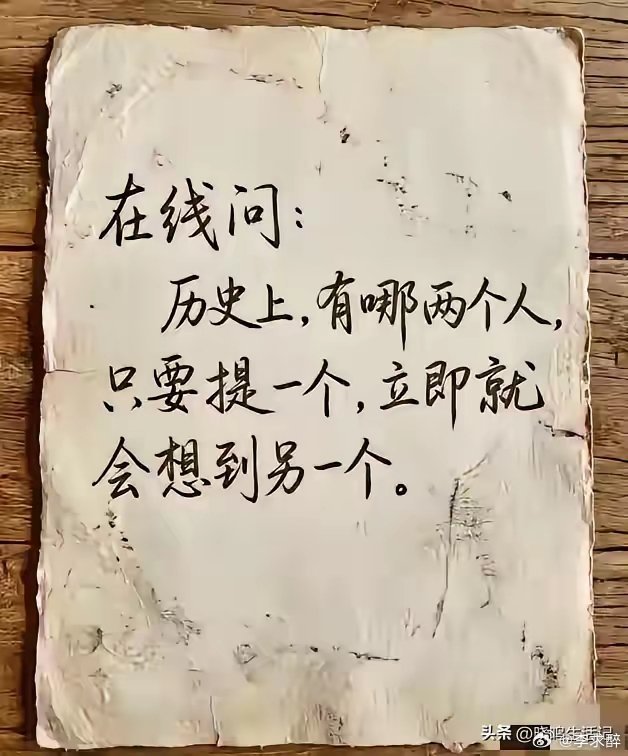 在线问：
历史上，有哪两个人，
只要提一个，立即就
会想到另一个。
头条
@李求醉